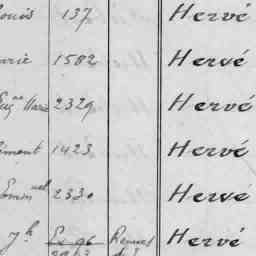 ouis 137 Hervé
arie 1582 Hervé
Eugne Marie 2329 Hervé
ément 1423 Hervé
2330 Hervé
Jh Ex 96 Hervé